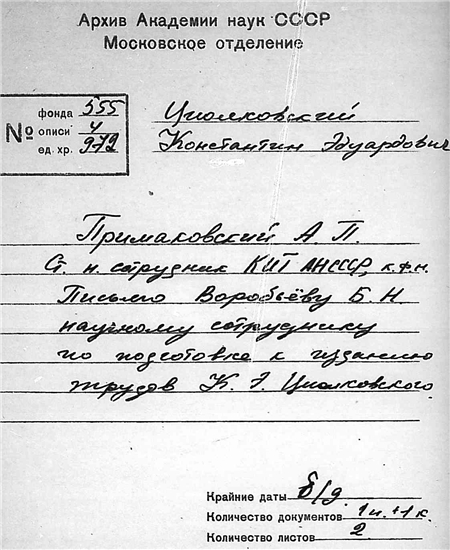 Архив Академии наук СССР
Московское отделение
№
фонда 555
описи 4
ед. хр. 972
Циолковский
Константин Эдуардович
Примаковский А. П.
Ст. н. сотрудник КИТ АНСССР, к.ф.н.
Письмо Воробьёву Б. Н
научному сотруднику
по подготовке к изданию
трудов К. Э. Циолковского
Крайние даты б/д.
Количество документов 1п.+1к.
Количество листов 2